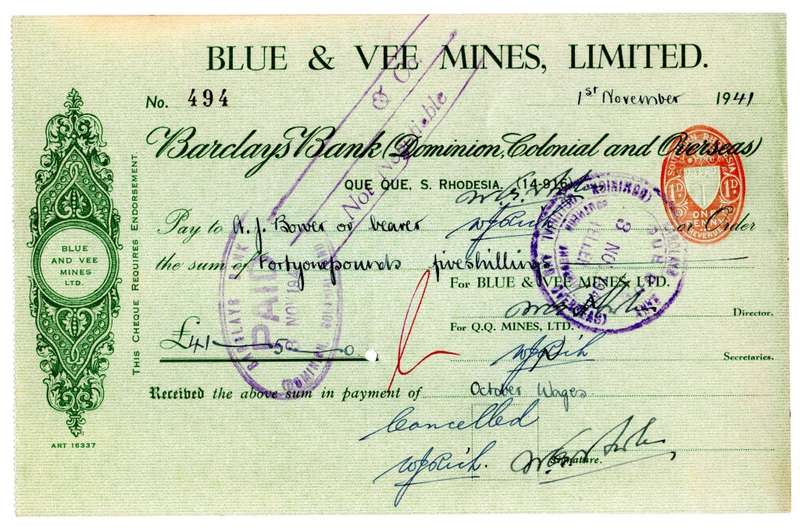 BLUE & VEE MINES, LIMITED.
No. 494
1st November 1941
& Co.
Not Negotiable
Barclays Bank (Dominion, Colonial and Overseas)
QUE QUE, S. RHODESIA. (14-916)
SOUTHERN RHODESIA
1D. 1D.
ONE
Pay to A. J. Bower or bearer or Order
the sum of Fortyonepounds fiveshillings
For BLUE & VEE MINES, LTD.
Director.
For Q.Q. MINES, LTD.
Secretaries.
£41—5—0
BARCLAYS BANK
PAID
8 NOV 19
(DOMINION
Received the above sum in payment of October Wages
Cancelled
Signature.
BLUE
AND VEE
MINES
LTD.
THIS CHEQUE REQUIRES ENDORSEMENT.
ART 16337